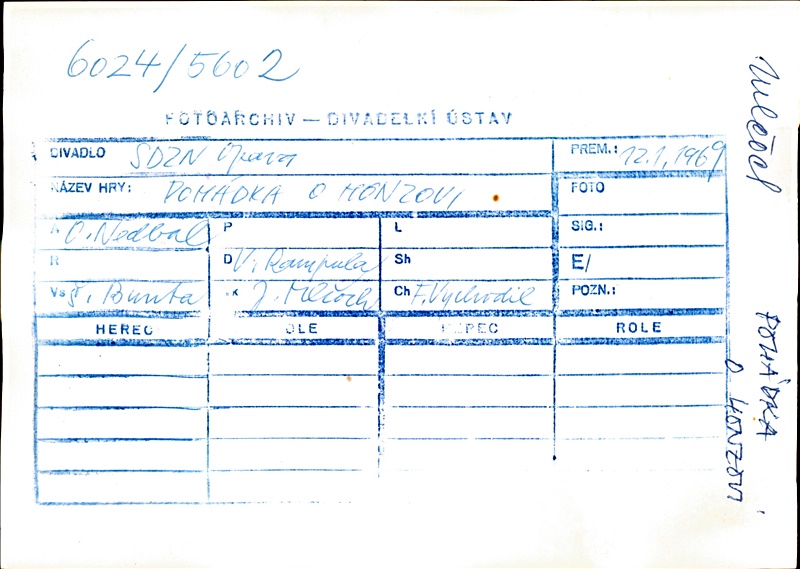 6024/5602
FOTOARCHIV — DIVADELNÍ ÚSTAV
DIVADLO SDZN Opava PREM.: 12.1.1969
NÁZEV HRY: POHÁDKA O HONZOVI FOTO
A O. Nedbal P L SIG.:
R D V. Rampula Sh E/
Vs F. Bunta K J. Mlčoch Ch F. Vychodil POZN.:
HEREC ROLE HEREC ROLE
Mlčoch
POHÁDKA
O HONZOVI